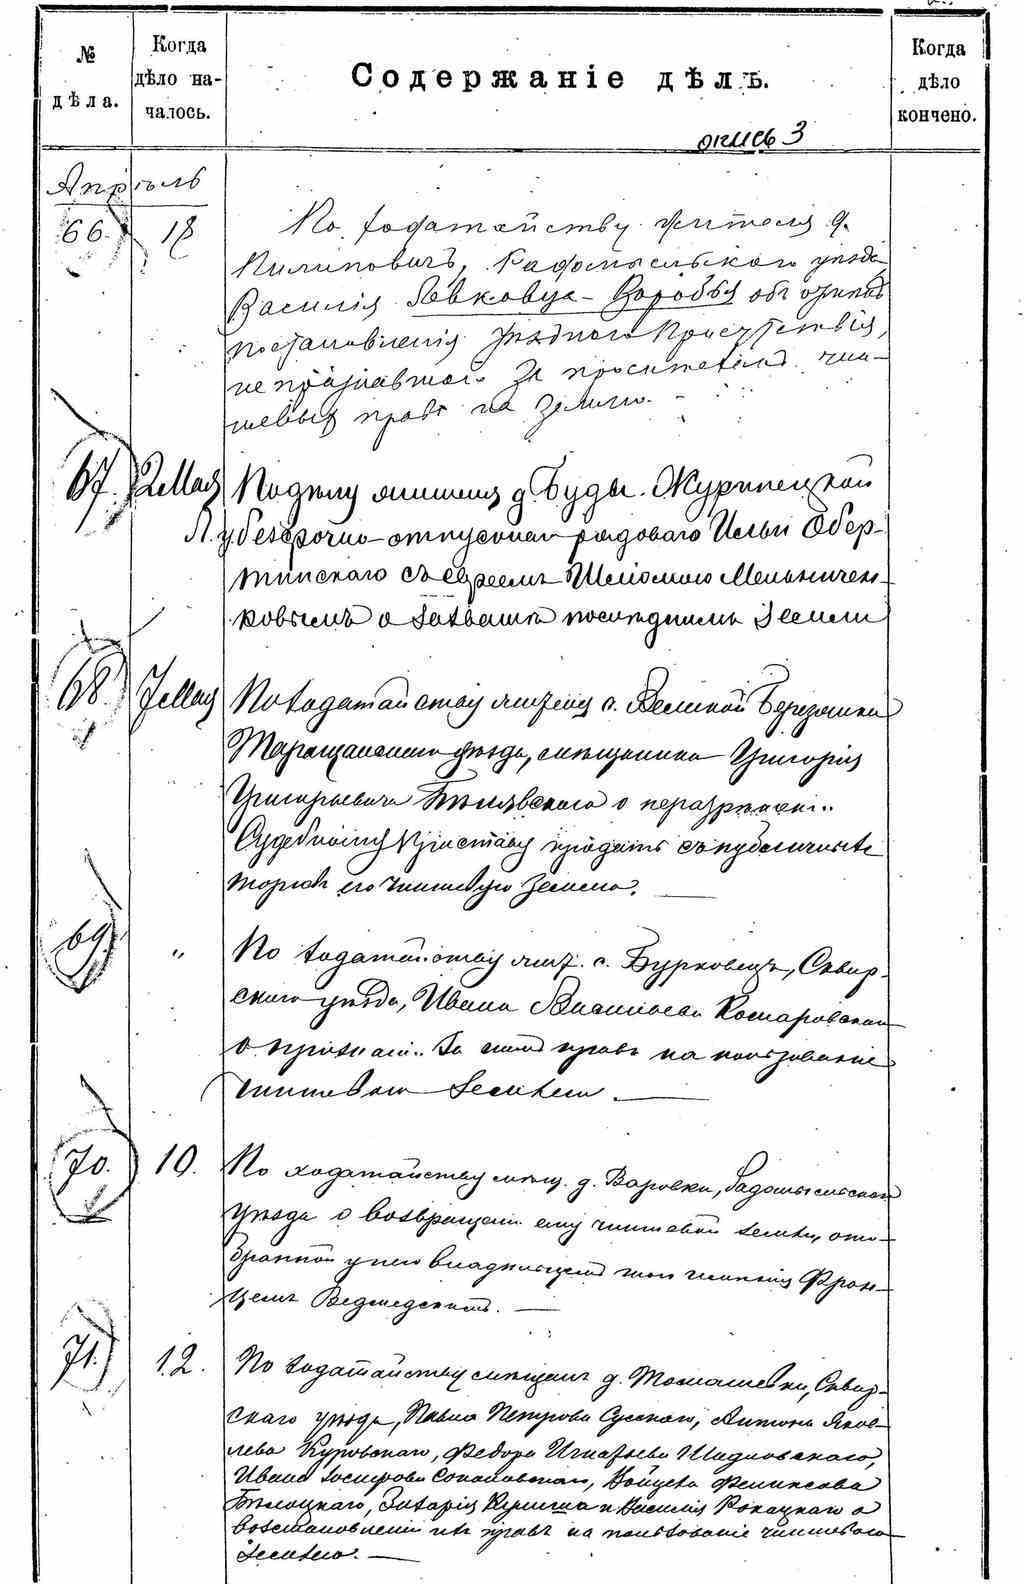 № дѣла.
Когда дѣло началось.
Содержаніе дѣлъ.
Когда дѣло кончено.
опись 3
Апрѣль
66. 18
По ходатайству жителя д.
Пилиповичъ, Радомысльскаго уѣзда
Василія Левковца-Воробья объ отмѣнѣ
постановленія Уѣзднаго Присутствія,
не признавшаго за просителемъ чин-
шевыхъ правъ на землю.
67. 2 Мая
По дѣлу жителя д. Буды
безсрочно-отпускнаго рядоваго Ильи Обер-
тинскаго съ евреемъ Шлiомою Мельничен-
ковымъ о захватѣ послѣднимъ земли
68. 7 Мая
По ходатайству жителя с. Великой Березянки
Таращанскаго уѣзда, мѣщанина Григорія
Григорьевича Бѣлявскаго о неразрѣшеніи
Судебному Приставу продать съ публичныхъ
торговъ его чиншевую землю.
69. "
По ходатайству жит. с. Бурковецъ, Сквир-
скаго уѣзда, Ивана Васильева Комаровскаго
о признаніи за нимъ правъ на пользованіе
чиншевою землею.
70. 10.
По ходатайству мѣщ. д. Варовки, Радомысльскаго
уѣзда о возвращеніи ему чиншевой земли, ото-
бранной у него владѣльцемъ Фран-
цемъ
71. 12.
По ходатайству мѣщанъ д. Томашевки, Сквир-
скаго уѣзда, Павла Петрова Сусскаго, Антона Яков-
лева Куровскаго, Федора Игнатьева Шидловскаго,
Ивана Іосифова Соколовскаго, Войцеха Феликсова
Бѣлоцкаго, Захарія и Василія Рокацкаго о
возстановленіи ихъ правъ на пользованіе чиншевою
землею.